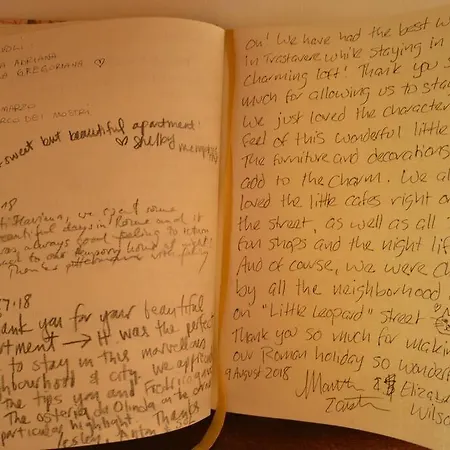 A ADRIANA
A GREGORIANA ♡
MARCO
RCO DEI MOSTRI
sweet but beautiful apartment!
♡ Shelby
18
we spent some
beautiful days in Rome and it
was always good feeling to return
back to our temporary home at night!
7.18
Thank you for your beautiful
apartment → It was the perfect
to stay in this marvellous
neighbourhood & city. We appreciated
the tips you and
The osteria de Olinda on the
particular highlight. Thanks
Oh! We have had the best w
in Trastavere while staying in
charming loft! Thank you s
much for allowing us to stay
We just loved the character
feel of this wonderful little
The furniture and decorations
add to the charm. We al
loved the little cafes right o
the street, as well as all
fun shops and the night lif
And of course, we were ch
by all the neighborhood
on "Little Leopard" street
Thank you so much for making
our Roman holiday so wonderf
9 August 2018
Elizab
Wilso